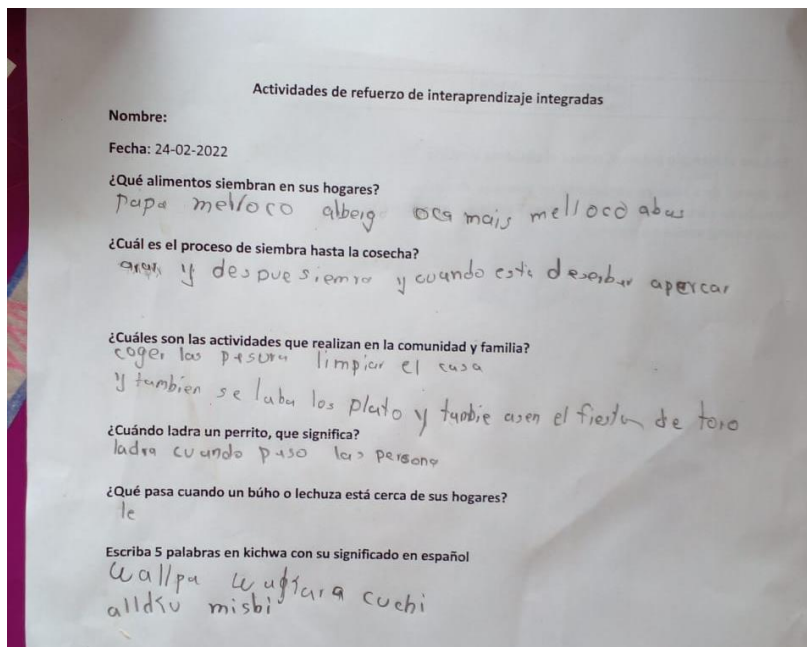 Actividades de refuerzo de interaprendizaje integradas
Nombre:
Fecha: 24-02-2022
¿Qué alimentos siembran en sus hogares?
papa melloco alberg oca mais melloco abas
¿Cuál es el proceso de siembra hasta la cosecha?
y despue siemra y cuando esta apercar
¿Cuáles son las actividades que realizan en la comunidad y familia?
coger las pasura limpiar el casa
y tambien se laba los plato y tambie asen el fiesta de toro
¿Cuándo ladra un perrito, que significa?
ladra cuando paso las persona
¿Qué pasa cuando un búho o lechuza está cerca de sus hogares?
le
Escriba 5 palabras en kichwa con su significado en español
wallpa cuchi
misbi